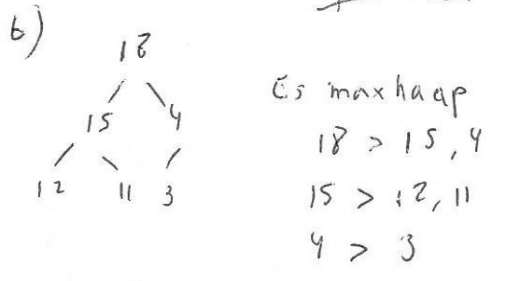 b)
18
15 4
12 11 3
Es maxhaap
18 > 15, 4
15 > 12, 11
4 > 3